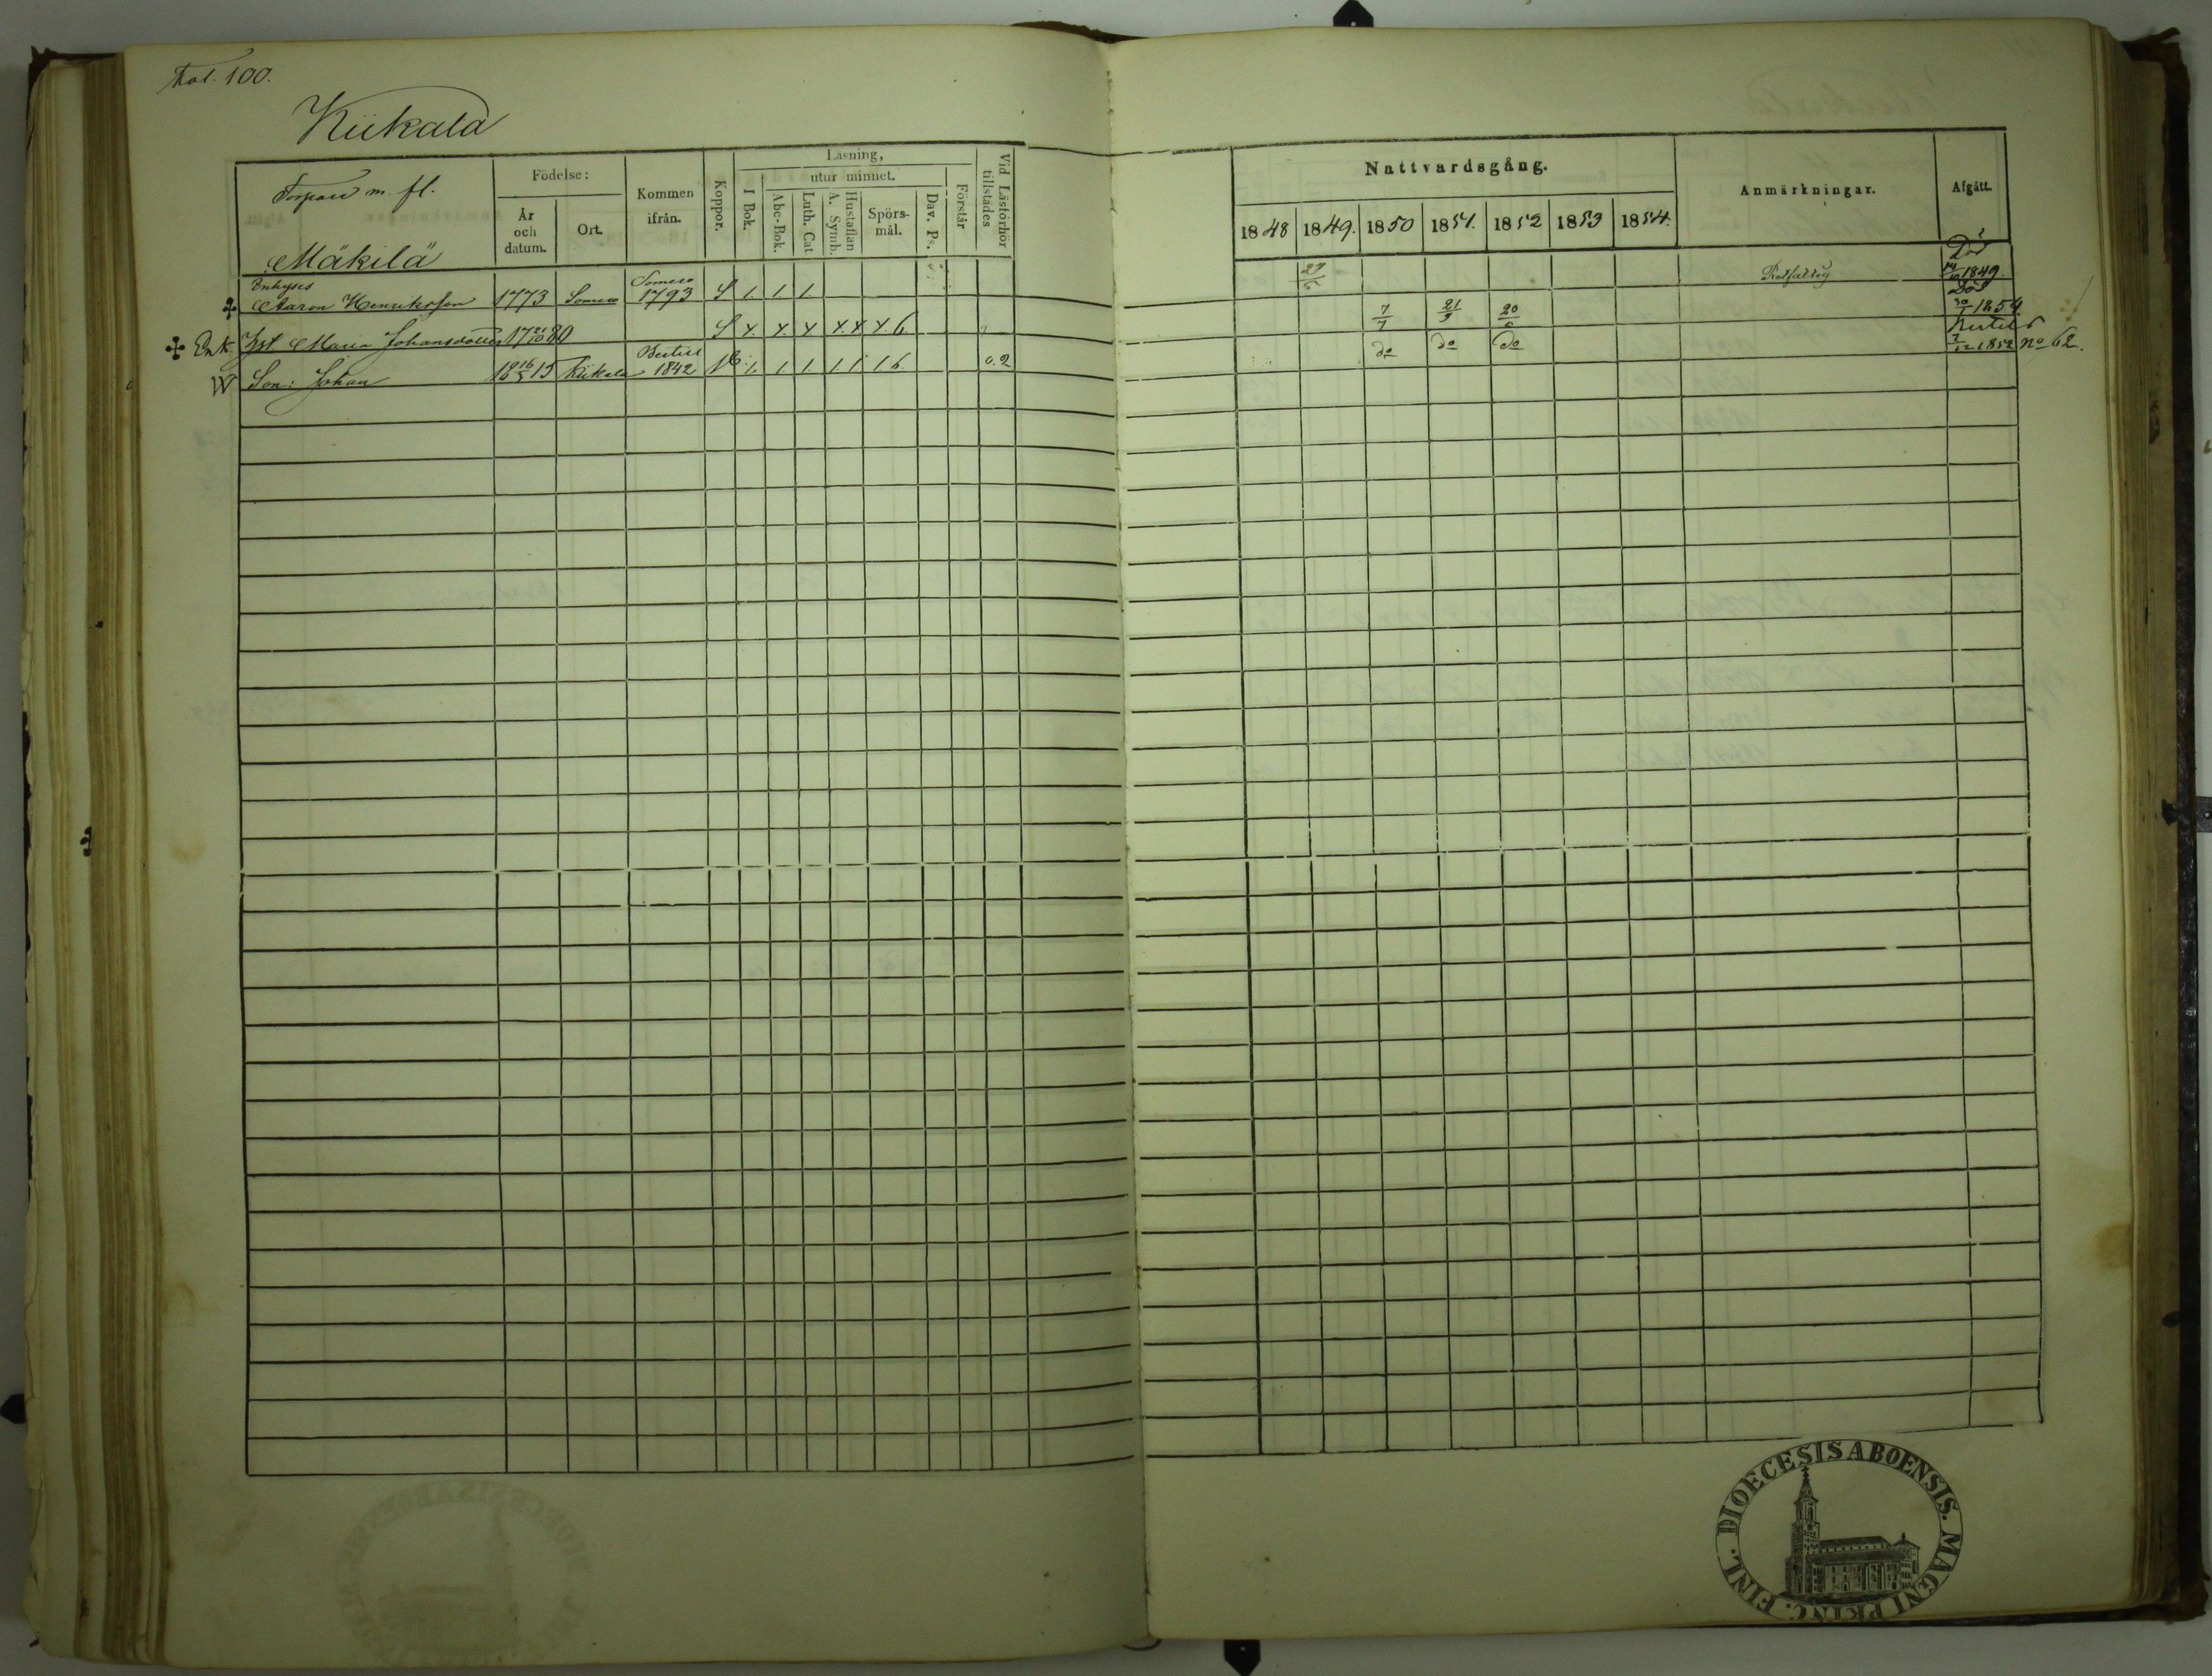 Fol. 100.
Kiikala
Torpare m. fl.
Mäkilä
Födelse:
År och datum.
Ort.
Kommen ifrån.
Koppor.
Läsning,
I Bok.
utur minnet.
Abc-Bok.
Luth. Cat
Hustaflan A. Symb.
Spörs-mål.
Dav. Ps.
Förstår
Vid Läsförhör tillstädes
Nattvardsgång.
1848 1849. 1850 1851. 1852 1853 1854.
Anmärkningar.
Afgått.
Enhyses Aaron Henriksson 1773 Somero Somero 1793 S 1. 1. 1. Död 1849.
Enk. Hst Maria Johansdotter 1780 S 7/7 21/9 Död 30/1 1854.
W Son: Johan 1815 Kiikala Bertils 1842 1 1 1 1 1 1 6. 0.2 do do do Bertils 1852 No 62.
DIOECESIS ABOENSIS. MAGNI PRINC. FINL.